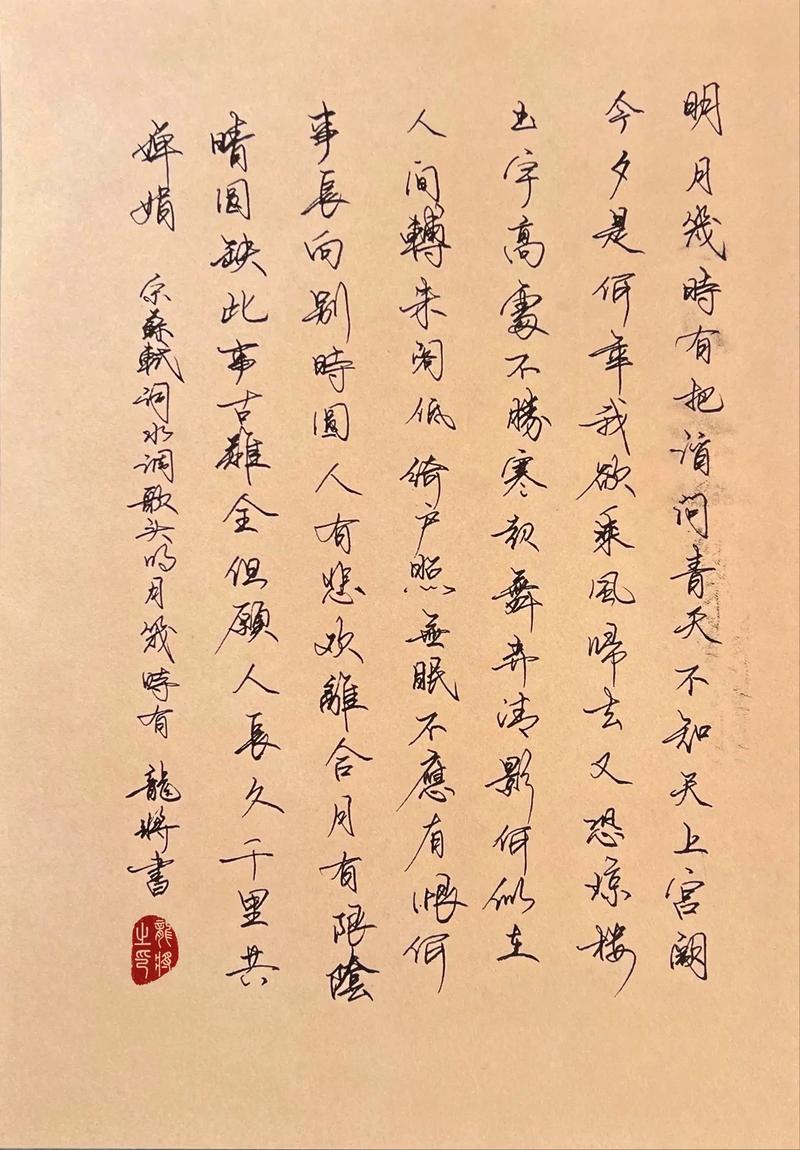 明月幾時有把酒問青天不知天上宮闕
今夕是何年我欲乘風歸去又恐瓊樓
玉宇高處不勝寒起舞弄清影何似在
人間轉朱閣低綺戶照無眠不應有恨何
事長向别時圓人有悲欢離合月有限陰
晴圓缺此事古難全但願人長久千里共
嬋娟 宋蘇軾词水调歌头明月幾時有 龍將書
龍將之印